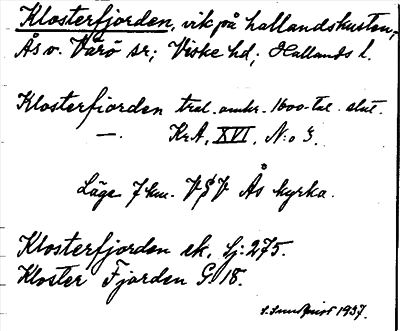 Klosterfjorden, vik på hallandskusten,
Ås o. Värö sr; Viske hd; Hallands l.
Klosterfiorden trol. omkr. 1600-tal. slut.
—. KrA, XVI, N:o 3.
Läge 7 km. VSV Ås kyrka.
Klosterfjorden ek. bl. 275.
Kloster Fjorden G 18.
1937.